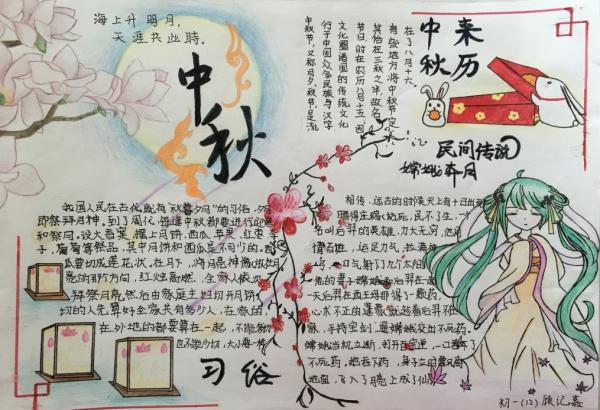 海上升明月，
天涯共此时。
中秋
中秋
来历
中秋节，又称月夕、秋节，是流
行于中国众多民族与汉字
文化圈诸国的传统文化
节日，时在农历八月十五，因
其恰在三秋之半，故名，
有些地方将中秋节定
在了八月十六
民间传说
嫦娥奔月
我国人民在古代就有"秋暮夕月"的习俗，夕月
即祭拜月神，到了周代，每逢中秋都要进行迎寒
和祭月。设大香案，摆上月饼、西瓜、苹果、红枣、李
子、葡萄等祭品，其中月饼和西瓜是不可少的。西
瓜要切成莲花状，在月下，将月亮神像放在月
亮的那个方向，红烛高燃，全家人依次
拜祭月亮，然后由家庭主妇切开月饼，
切的人先算好全家共有多少人，在家的
在外地的都要算在一起，不能切多
也不能切少，大小要一样
习俗
相传，远古的时候天上有十日
民不生，一个
名叫后羿的英雄，力大无穷，他
情百姓，运足力气，拉满
一口气射了九个太阳
他的妻子嫦娥
天后羿在西王母那得了一颗药，
心术不正的逢蒙趁后羿不在
手持宝剑逼嫦娥交出不死药。
嫦娥当机立断，
不死药，她吞下药，身子立时飘离
地面，飞入了月亮上成了仙
初一(12)